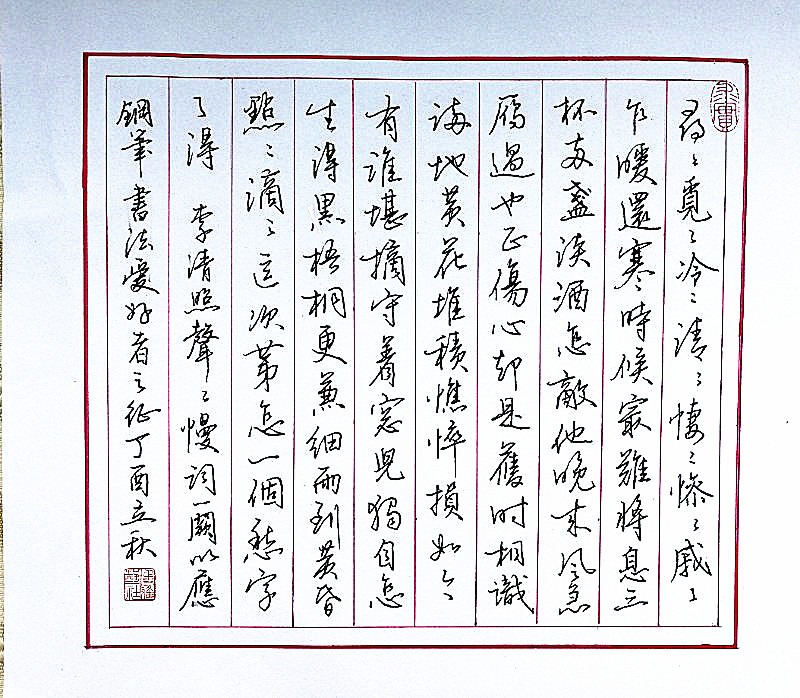 尋々覓々冷々清々悽々慘々戚々
乍暖還寒時候最難將息三
杯兩盞淡酒怎敵他晚來風急
鴈過也正傷心却是舊时相識
滿地黃花堆積憔悴損如今
有誰堪摘守着窗兒獨自怎
生得黑梧桐更兼細雨到黃昏
點々滴々這次第怎一個愁字
了得 李清照聲々慢詞一闋以應
鋼筆書法愛好者之征丁酉立秋